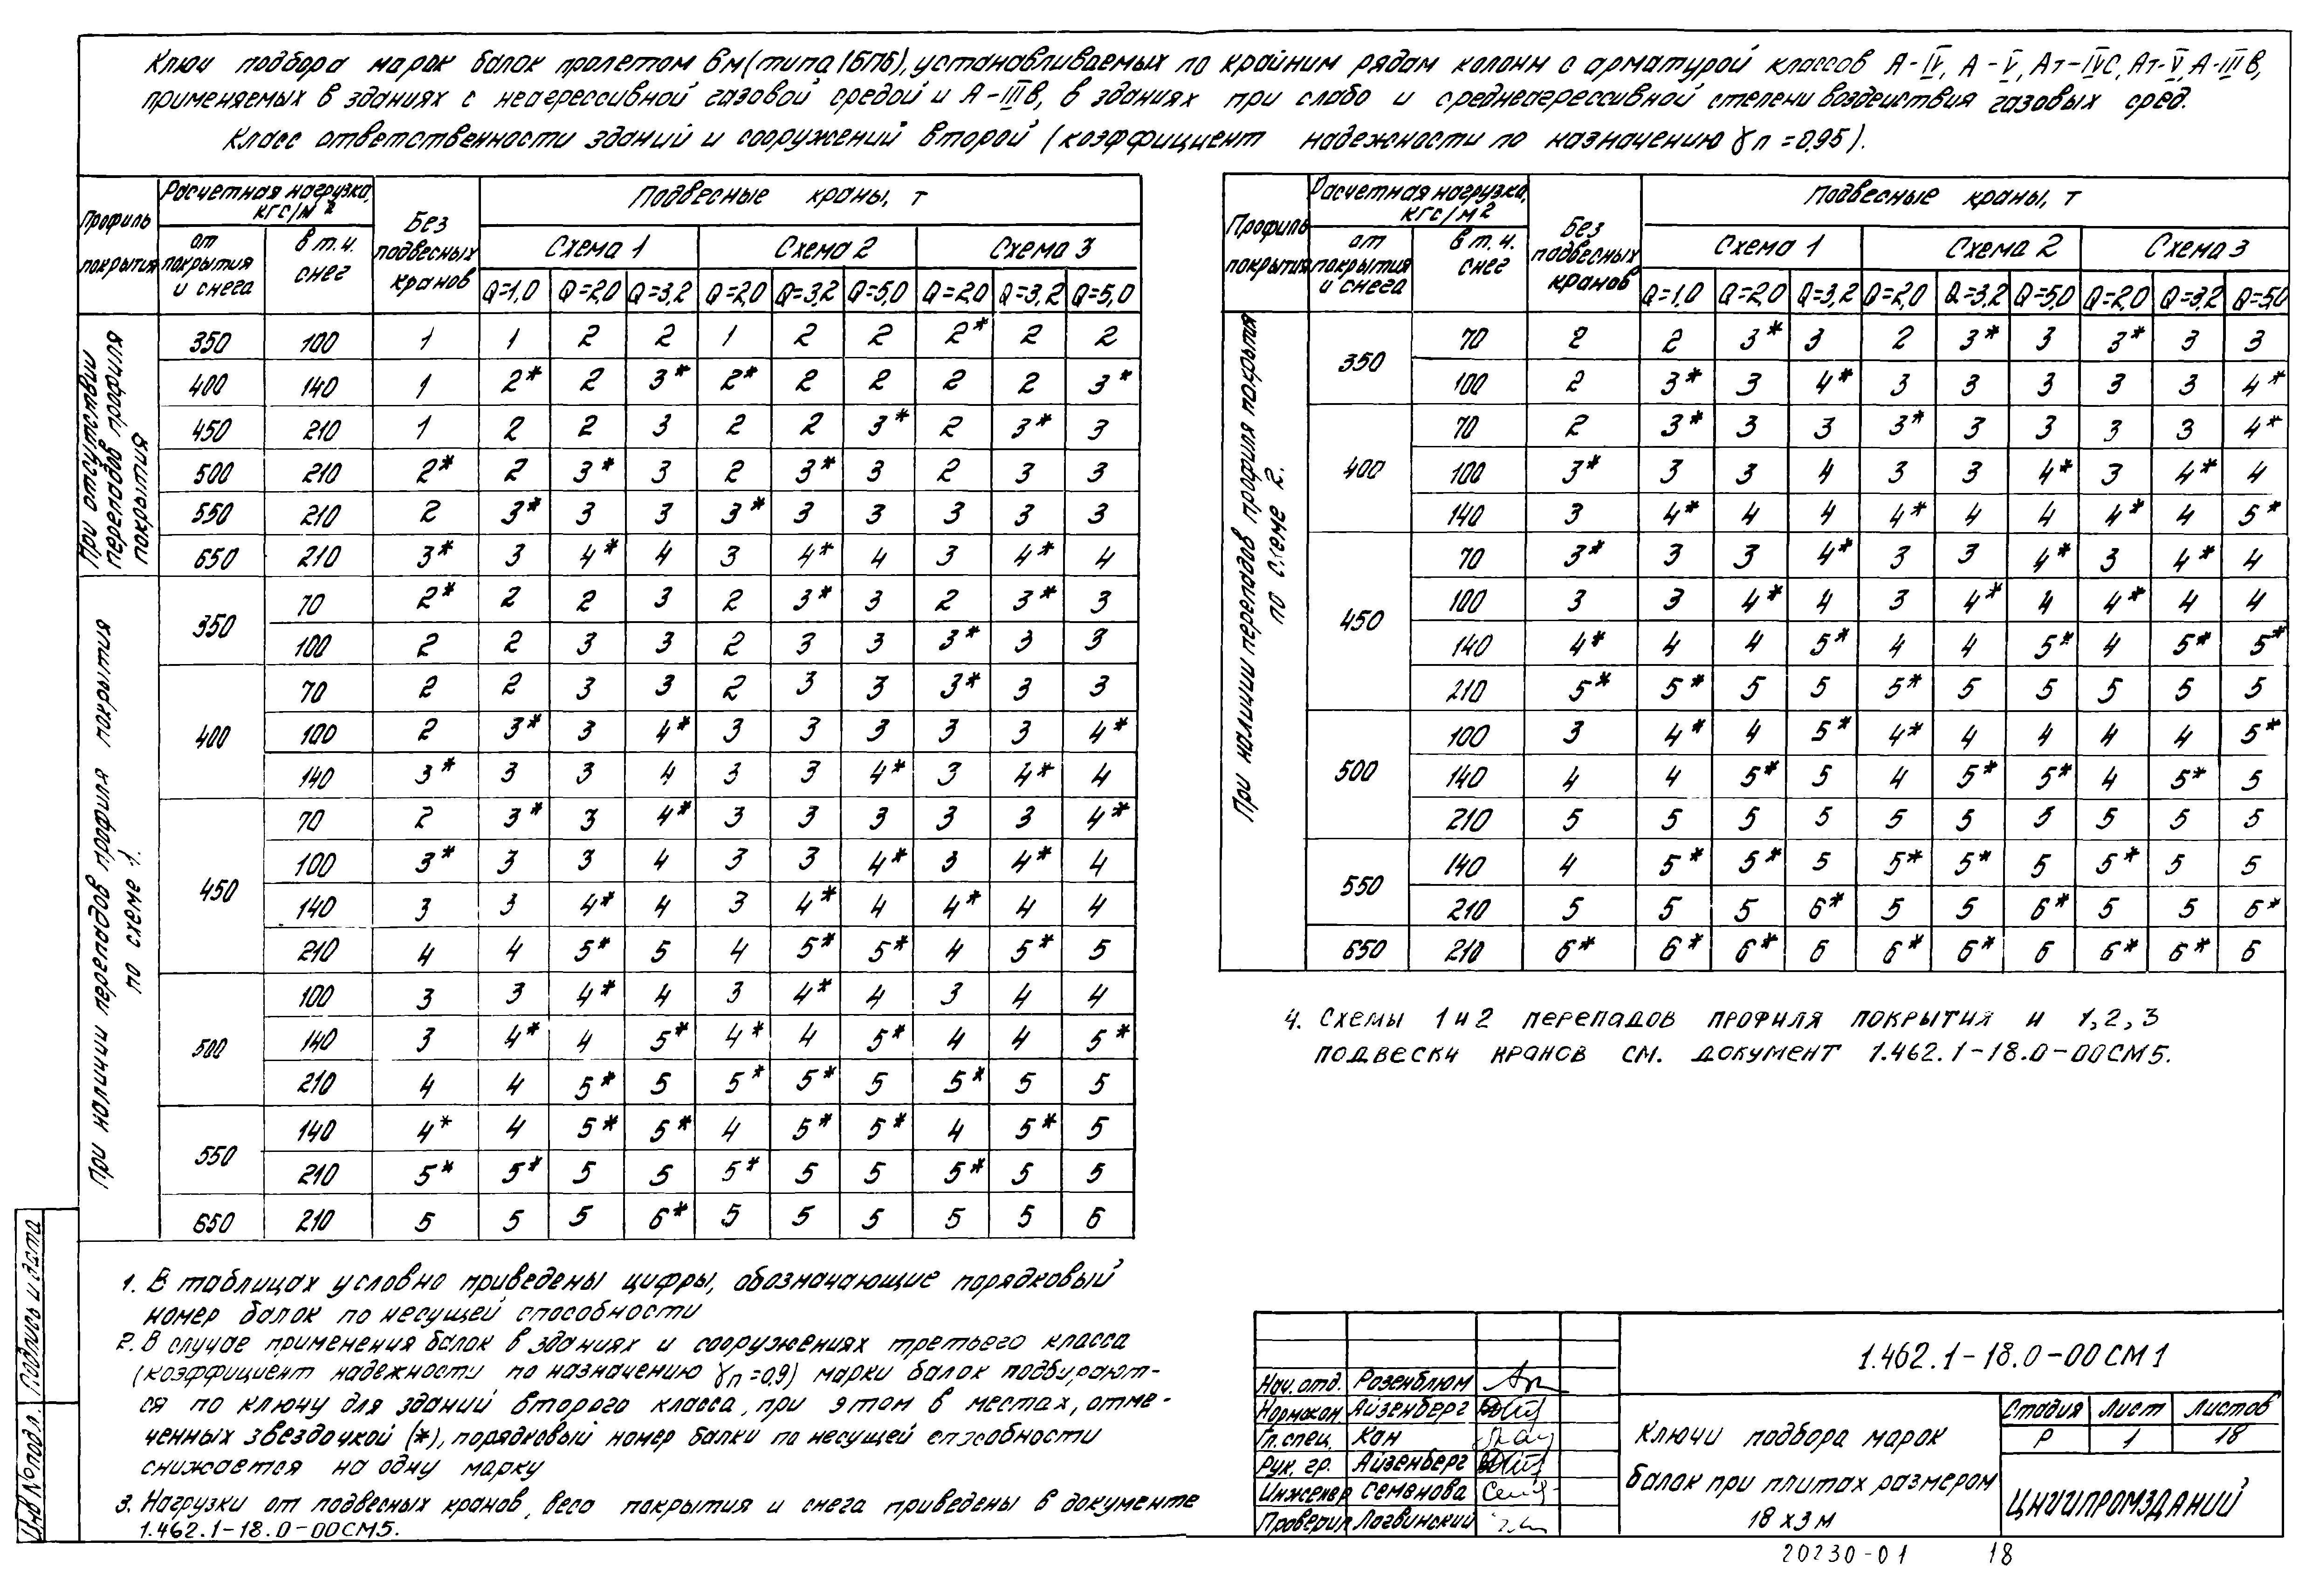 Ключ подбора марок балок пролетом 6м (типа 1БП6), устанавливаемых по крайним рядам колонн с арматурой классов А-IV, А-V, Ат-IVС, Ат-V, А-IIIВ,
применяемых в зданиях с неагрессивной газовой средой и А-IIIв, в зданиях при слабо и среднеагрессивной степени воздействия газовых сред.
Класс ответственности зданий и сооружений второй (коэффициент надежности по назначению γп=0,95).
Профиль покрытия
Расчетная нагрузка, кгс/м2
от покрытия и снега
в т.ч. снег
Без подвесных кранов
Подвесные краны, т
Схема 1 Схема 2 Схема 3
Q=1,0 Q=2,0 Q=3,2 Q=2,0 Q=3,2 Q=5,0 Q=2,0 Q=3,2 Q=5,0
При отсутствии перепадов профиля покрытия
350 100 1 1 2 2 1 2 2 2* 2 2
400 140 1 2* 2 3* 2* 2 2 2 2 3*
450 210 1 2 2 3 2 2 3* 2 3* 3
500 210 2* 2 3* 3 2 3* 3 2 3 3
550 210 2 3* 3 3 3* 3 3 3 3 3
650 210 3* 3 4* 4 3 4* 4 3 4* 4
При наличии перепадов профиля покрытия по схеме 1.
350 70 2* 2 2 3 2 3* 3 2 3* 3
100 2 2 3 3 2 3 3 3* 3 3
400 70 2 2 3 3 2 3 3 3* 3 3
100 2 3* 3 4* 3 3 3 3 3 4*
140 3* 3 3 4 3 3 4* 3 4* 4
450 70 2 3* 3 4* 3 3 3 3 3 4*
100 3* 3 3 4 3 3 4* 3 4* 4
140 3 3 4* 4 3 4* 4 4* 4 4
210 4 4 5* 5 4 5* 5* 4 5* 5
500 100 3 3 4* 4 3 4* 4 3 4 4
140 3 4* 4 5* 4* 4 5* 4 4 5*
210 4 4 5* 5 5* 5* 5 5* 5 5
550 140 4* 4 5* 5* 4 5* 5* 4 5* 5
210 5* 5* 5 5 5* 5 5 5* 5 5
650 210 5 5 5 6* 5 5 5 5 5 6
1. В таблицах условно приведены цифры, обозначающие порядковый
номер балок по несущей способности
2. В случае применения балок в зданиях и сооружениях третьего класса
(коэффициент надежности по назначению γп=0,9) марки балок подбирают-
ся по ключу для зданий второго класса, при этом в местах, отме-
ченных звездочкой (*), порядковый номер балки по несущей способности
снижается на одну марку
3. Нагрузки от подвесных кранов, веса покрытия и снега приведены в документе
1.462.1-18.0-00СМ5.
Профиль покрытия
Расчетная нагрузка, кгс/м2
от покрытия и снега
в т.ч. снег
Без подвесных кранов
Подвесные краны, т
Схема 1 Схема 2 Схема 3
Q=1,0 Q=2,0 Q=3,2 Q=2,0 Q=3,2 Q=5,0 Q=2,0 Q=3,2 Q=5,0
При наличии перепадов профиля покрытия по схеме 2.
350 70 2 2 3* 3 2 3* 3 3* 3 3
100 2 3* 3 4* 3 3 3 3 3 4*
400 70 2 3* 3 3 3* 3 3 3 3 4*
100 3* 3 3 4 3 3 4* 3 4* 4
140 3 4* 4 4 4* 4 4 4* 4 5*
450 70 3* 3 3 4* 3 3 4* 3 4* 4
100 3 3 4* 4 3 4* 4 4* 4 4
140 4* 4 4 5* 4 4 5* 4 5* 5*
210 5* 5* 5 5 5* 5 5 5 5 5
500 100 3 4* 4 5* 4* 4 4 4 4 5*
140 4 4 5* 5 4 5* 5* 4 5* 5
210 5 5 5 5 5 5 5 5 5 5
550 140 4 5* 5* 5 5* 5* 5 5* 5 5
210 5 5 5 6* 5 5 6* 5 5 6*
650 210 6* 6* 6* 6 6* 6* 6 6* 6* 6
4. Схемы 1 и 2 перепадов профиля покрытия и 1,2,3
подвески кранов см. документ 1.462.1-18.0-00СМ5.
Нач. отд. Розенблюм
Нормокон Айзенберг
Гл. спец. Кан
Рук. гр. Айзенберг
Инженер Семенова
Проверил Логвинский
1.462.1-18.0-00СМ1
Ключи подбора марок
балок при плитах размером
18х3м
Стадия Лист Листов
Р 1 18
ЦНИИПРОМЗДАНИЙ
Инв № подл. Подпись и дата
20230-01 18